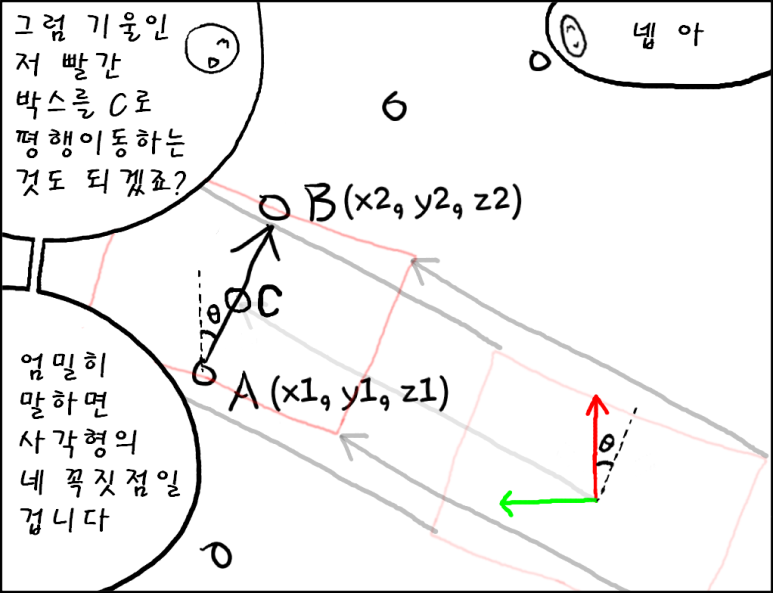 그럼 기울인
저 빨간
박스를 C로
평행이동하는
것도 되겠죠?
넵 아
B (x2, y2, z2)
C
θ
A (x1, y1, z1)
엄밀히
말하면
사각형의
네 꼭짓점일
겁니다
θ